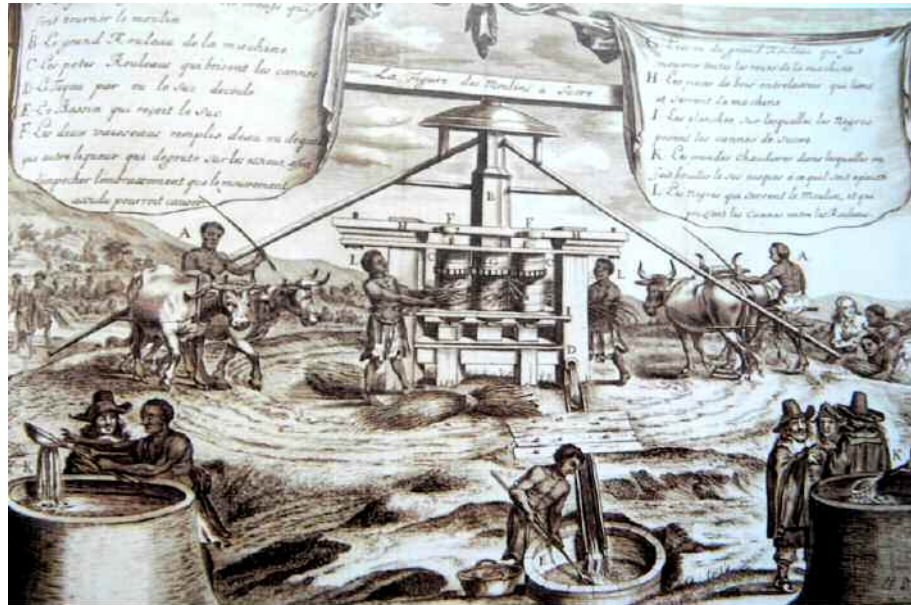 font tourner le moulin
B Le grand Rouleau de la machine
C Les petis Rouleaux qui brisent les cannes
D Tuyau par ou le Suc decoule
E Le Bassin qui reçoit le Suc
F Les deux vaisseaux remplis d'eau ou de
quelque autre liqueur qui degoute sur les
empecher l'embrasement que le mouvement
pourroit causer
La Figure des Moulins a Sucre
G du grand Rouleau qui fait
mouvoir toutes les roues de la machine
H Les pieces de bois entrelassees qui lient
et serrent la machine
I Les planches sur lesquelles les Negres
posent les cannes de Sucre
K Les grandes chaudieres dans lesquelles on
fait bouillir le Suc jusques a ce qu'il soit epaissi
L Les Negres qui servent le Moulin, et qui
pressent les Cannes entre les Rouleaux
A
A
F
F
H
B
I
L
C
G
D
K
K
E